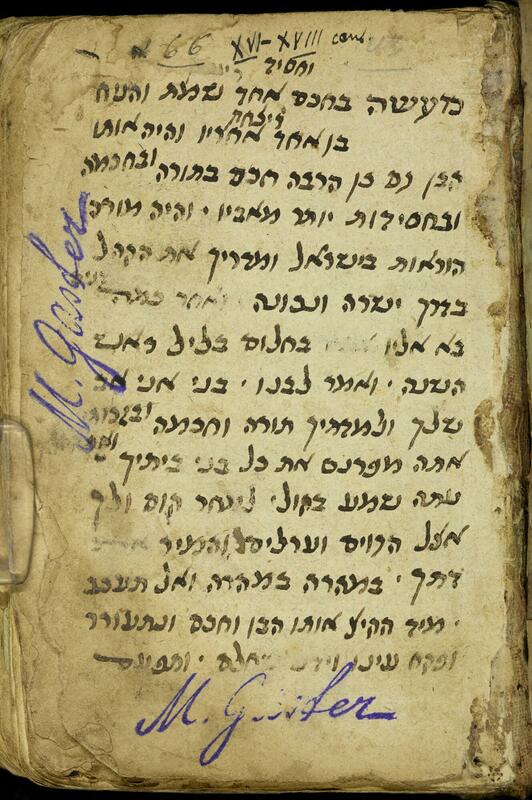 66 XVI-XVIII cent
וחסיד
כדעשה בחכם אחד שמת והניח
בן אחד אחריו והיה אותו
הבן גם כן הרבה חכם בתורה ובחכמה
ובחסידות יותר מאביו · והיה מורה
הוראות בישראל ומדריך את הקהל
בדרך ישרה ונבונה ואחר כמה
בא אליו בחלום בליל ראש
השנה · ואמר לבנו · בני אני אב
שלך ולמדתיך תורה וחכמה
אתה מפרנס את כל בני ביתיך
עתה שמע בקולי ליעצך קום ולך
אצל הגוים וערליםל והמיר
דתך · במהרה במהרה ואל תעכב
· מיד הקיץ אותו הבן וחכם ונתעורר
ופקח עיניו וידע
M. Gaster
M. Gaster